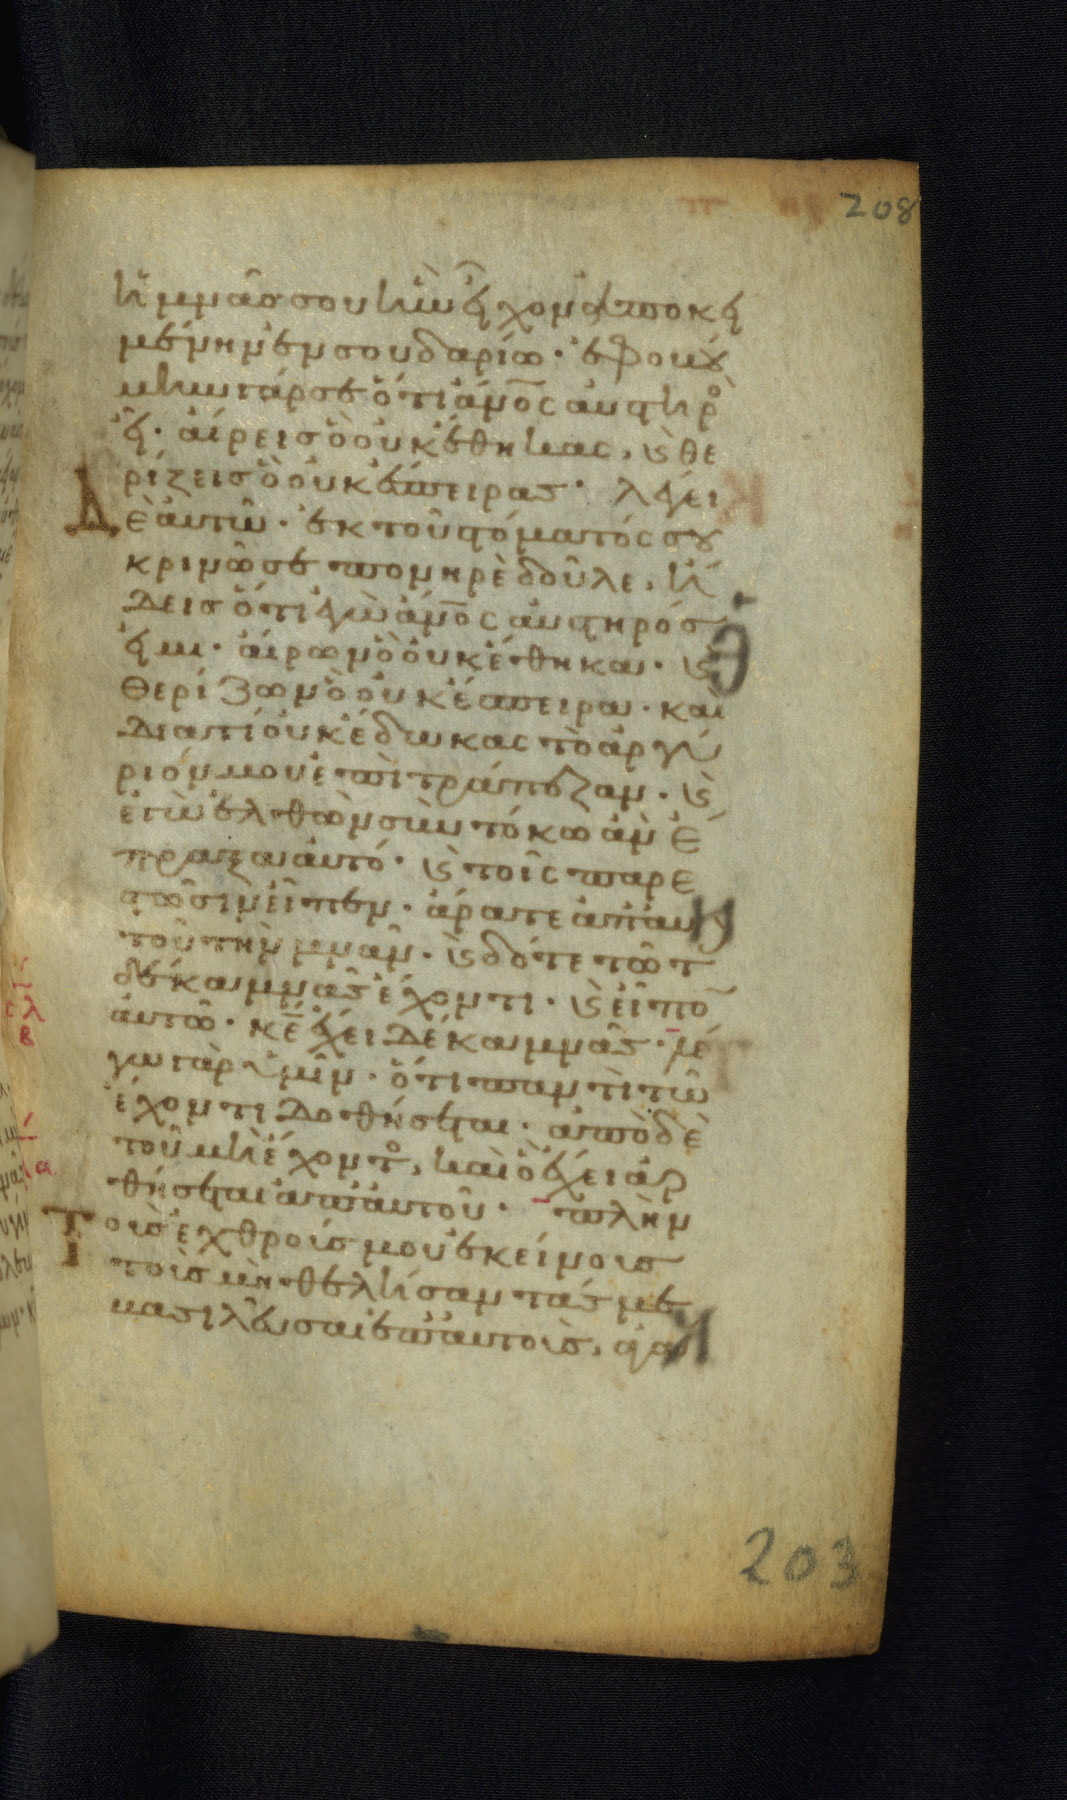 208
ἡ μνᾶ σου ἣν εἶχον ἀποκει
μένην ἐν σουδαρίω· ἐφοβού
μην γάρ σε ὅτι ἄνος αὐστηρὸς
εἶ· αἴρεις ὃ οὐκ ἔθηκας, κ θε
ρίζεις ὃ οὐκ ἔσπειρας· λέγει
Δὲ αὐτῶ· ἐκ τοῦ στόματός σου
κρινῶ σε πονηρὲ δοῦλε, ἤ
δεις ὅτι ἐγὼ ἄνος αὐστηρός
εἰμι· αἴρων ὃ οὐκ ἔθηκα· κ
θερίζων ὃ οὐκ ἔσπειρα· καὶ
διατί οὐκ ἔδωκας τὸ ἀργύ
ριόν μου ἐπὶ τράπεζαν· κ
ἐγὼ ἐλθὼν σὺν τόκω ἂν ἔ
πραξα αὐτό· κ τοῖς παρε
στῶσιν εἶπεν· ἄρατε ἀπ αὐ
τοῦ τὴν μνᾶν· κ δότε τῶ τ
δέκα μνᾶς ἔχοντι· κ εἶπον
αὐτῶ· κε ἔχει δέκα μνᾶς· λέ
γω γὰρ ὑμῖν· ὅτι παντὶ τῶ
ἔχοντι δοθήσεται· ἀπὸ δὲ
τοῦ μὴ ἔχοντος, καὶ ὃ ἔχει ἀρ
θήσεται ἀπ αὐτοῦ· πλὴν
Τοὺς ἐχθρούς μου ἐκείνους
τοὺς μὴ θελήσαντάς με
βασιλεῦσαι ἐπ αὐτοὺς, ἀγά
203